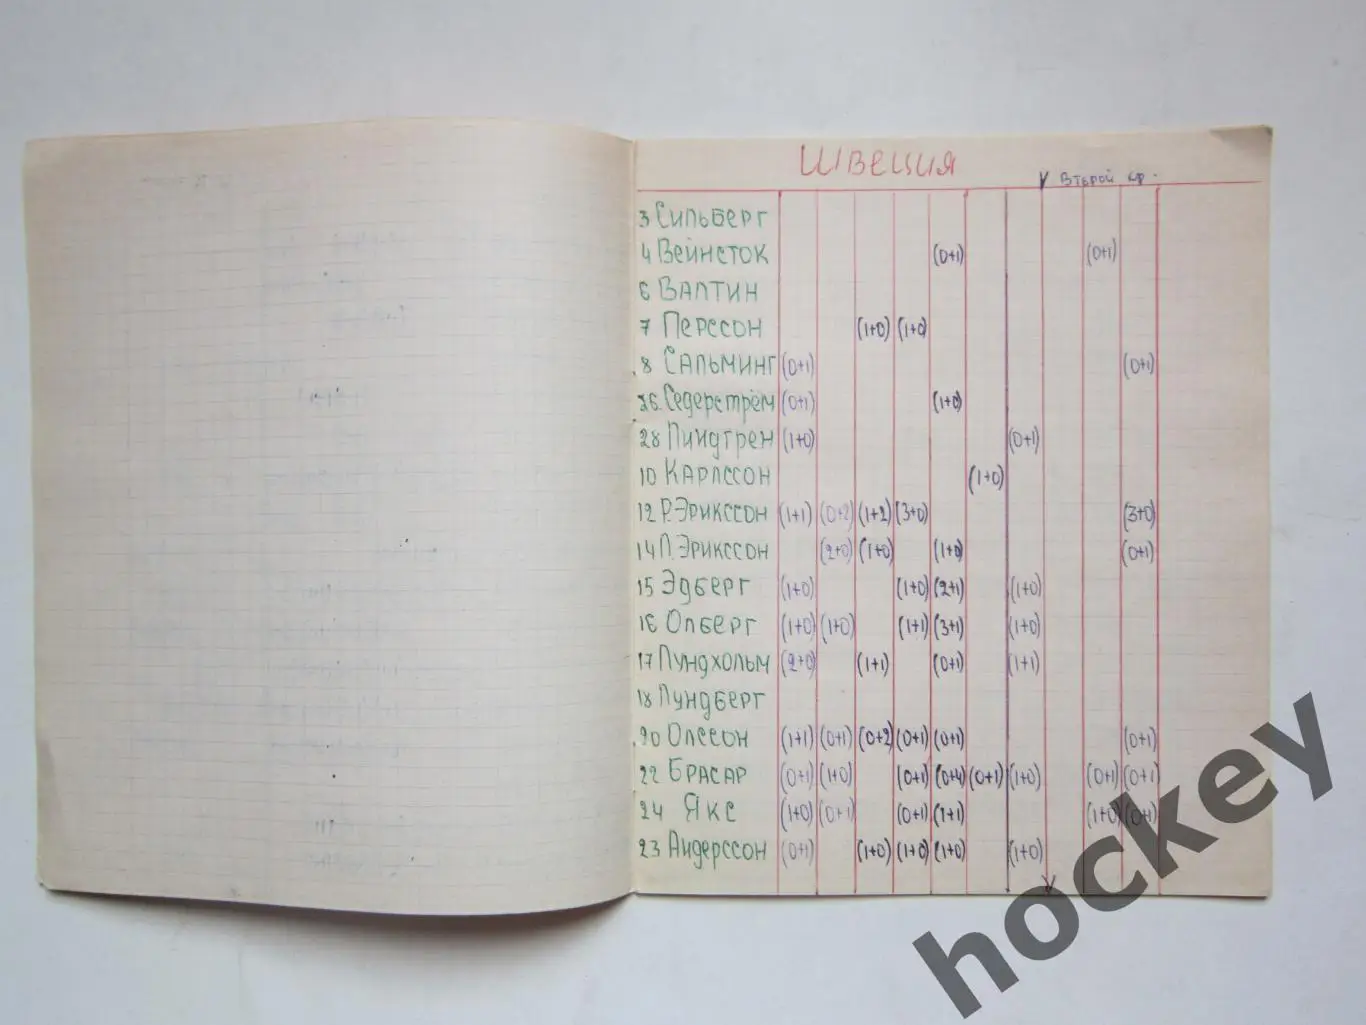 ШВЕЦИЯ
Второй кр.
3 Сильберг
4 Вейнсток (0+1) (0+1)
6 Валтин
7 Перссон (1+0) (1+0)
8 Сальминг (0+1) (0+1)
26. Седерстрём (0+1) (1+0)
28 Линдгрен (1+0) (0+1)
10 Карлссон (1+0)
12 Р. Эрикссон (1+1) (0+2) (1+2) (3+0) (3+0)
14 П. Эрикссон (2+0) (1+0) (1+0) (0+1)
15 Эдберг (1+0) (1+0) (2+1) (1+0)
16 Олберг (1+0) (1+0) (1+1) (3+1) (1+0)
17 Лундхольм (2+0) (1+1) (0+1) (1+1)
18 Лундберг
20 Олссон (1+1) (0+1) (0+2) (0+1) (0+1) (0+1)
22 Брасар (0+1) (1+0) (0+1) (0+4) (0+1) (1+0) (0+1) (0+1)
24 Якс (1+0) (0+1) (0+1) (1+1) (1+0) (0+1)
23 Андерссон (0+1) (1+0) (1+0) (1+0) (1+0)
hockey